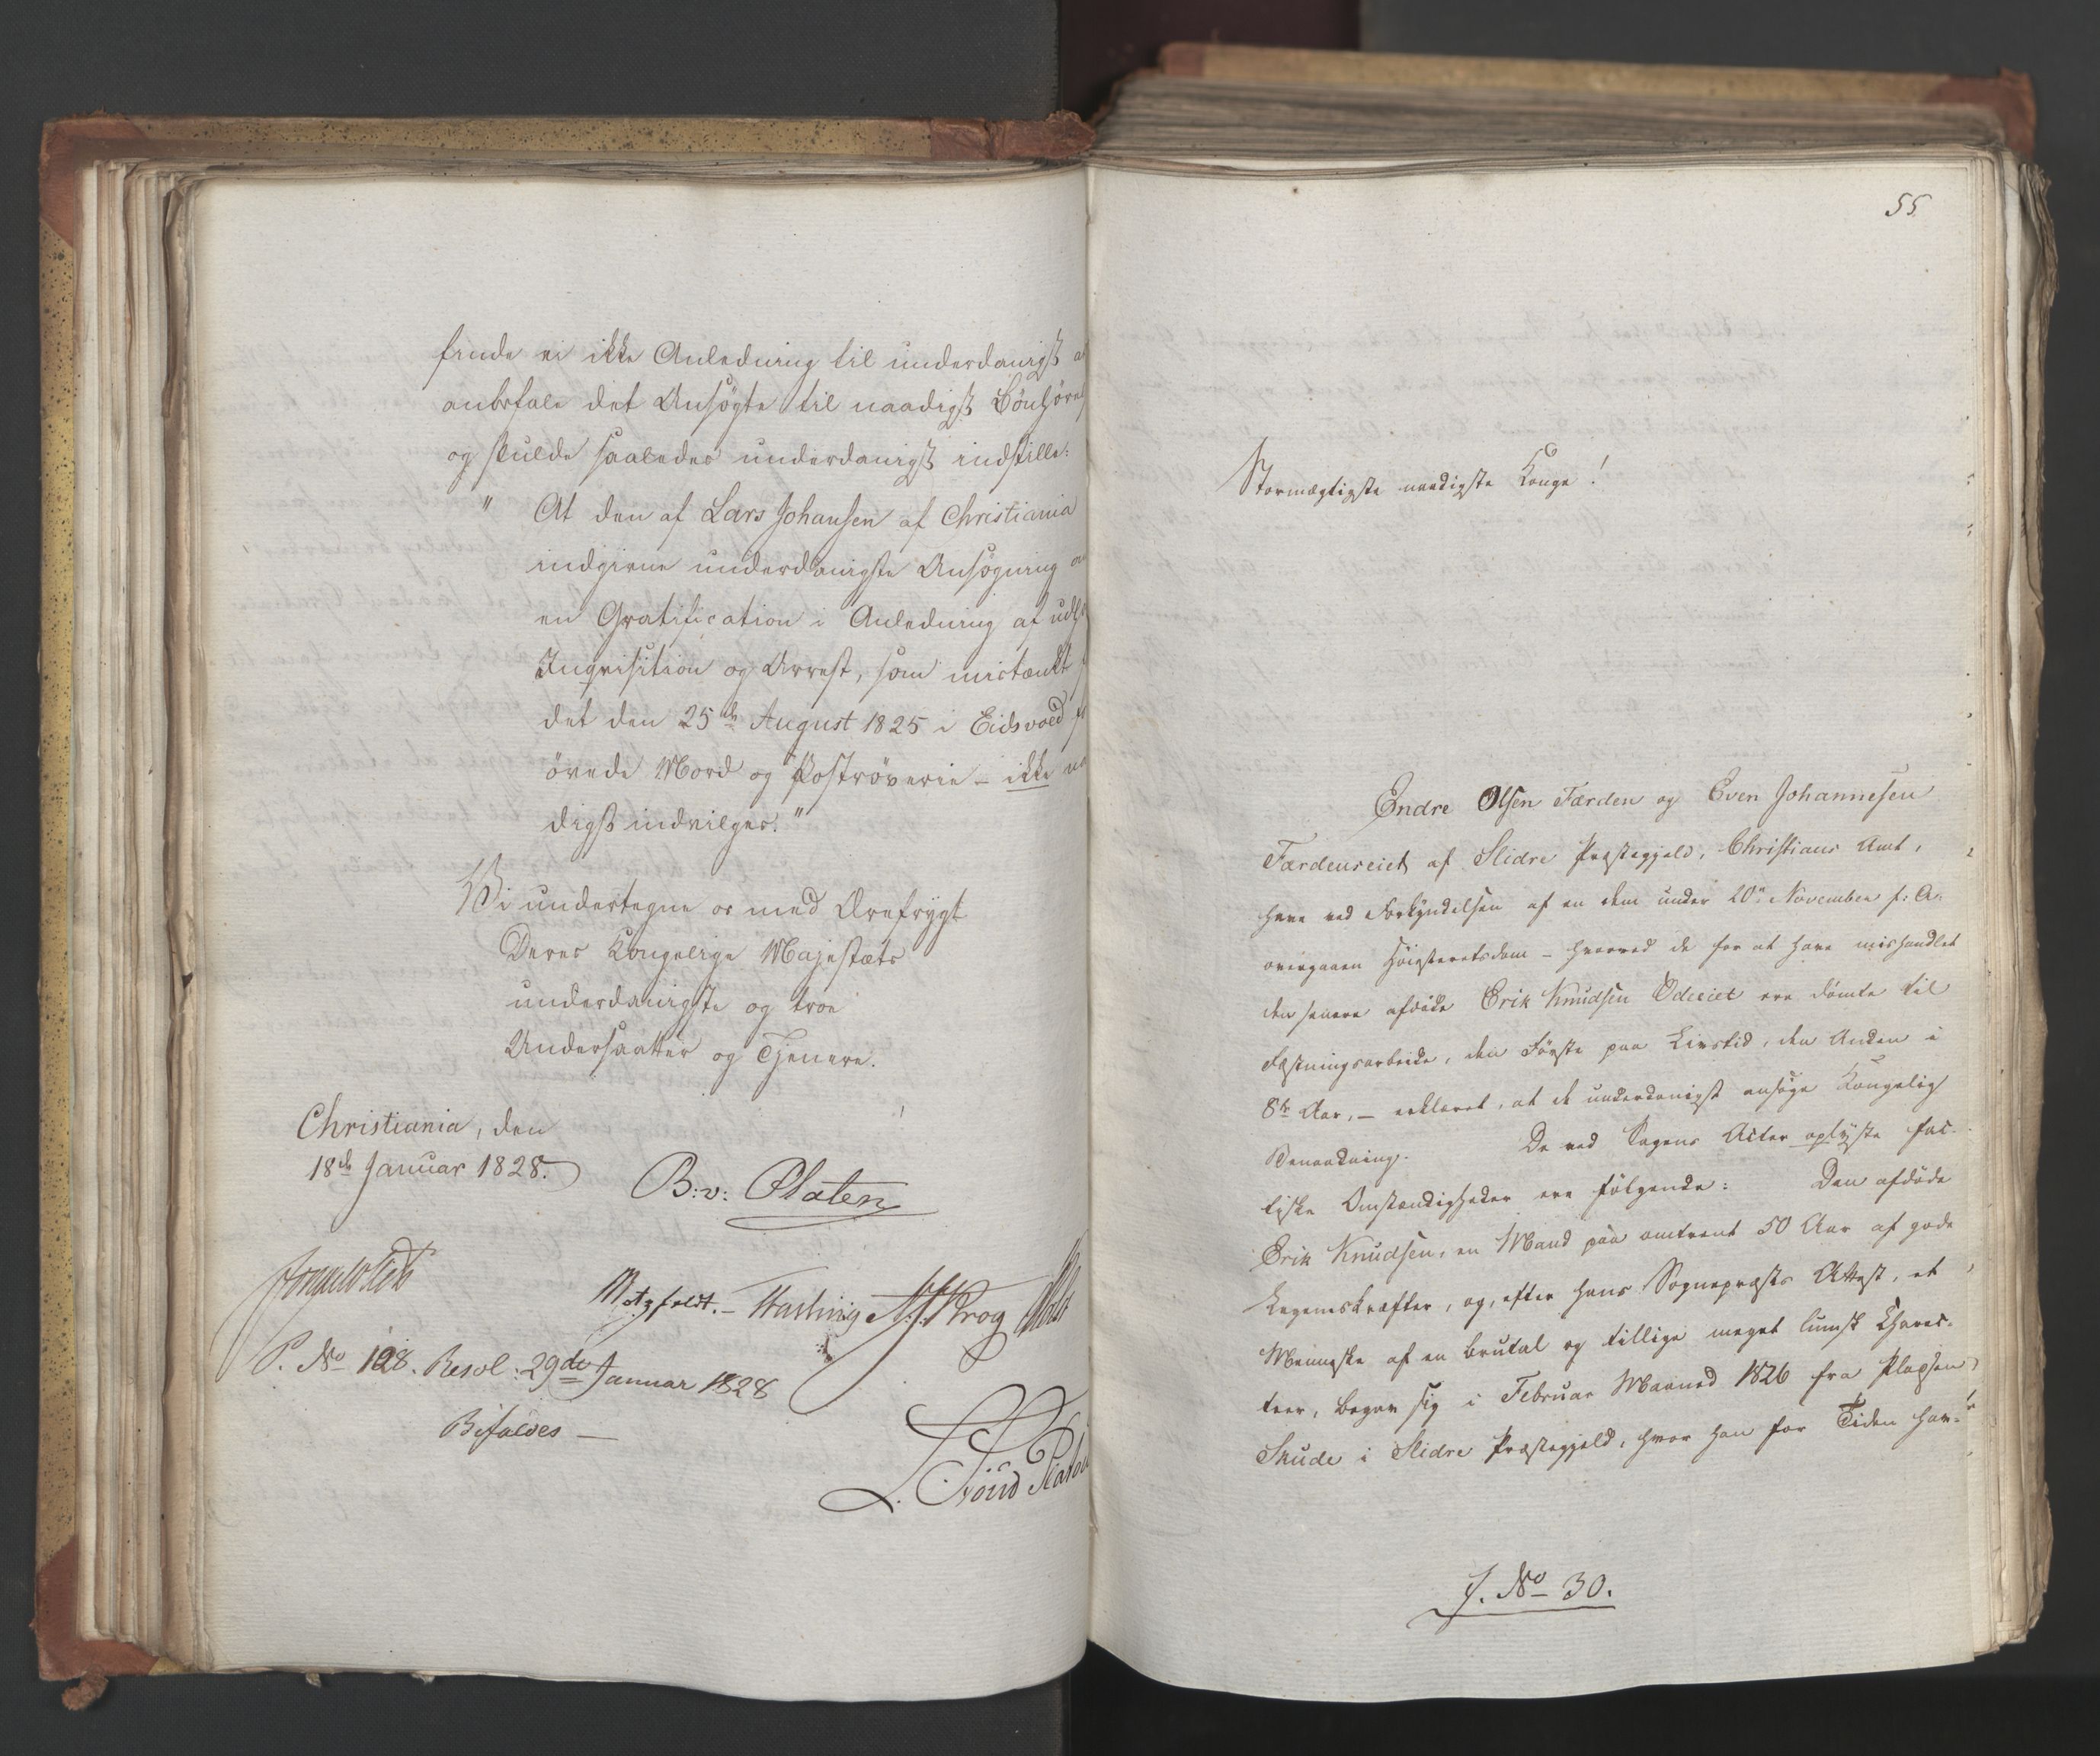 finde vi ikke Anledning til underdanigst a
anbefale det Ansøgte til naadigst Bønhørel
og skulde saaledes underdanigst indstille:
" At den af Lars Johansen af Christiania
indgivne underdanigste Ansøgning o
en Gratification i Anledning af udst
Inqvisition og Arrest, som mistænkt f
det den 25de August 1825 i Eidsvold
øvede Mord og Postrøverie – ikke na
digst indvilges."
Vi undertegne os med Ærefrygt
Deres Kongelige Majestæts
underdanigste og troe
Undersaatter og Tjenere.
Christiania, den
18de Januar 1828.
B: v: Platen
Motzfeldt. – Krog
P. No 128. Resol: 29de Januar 1828
Bifaldes —
55.
Stormægtigste naadigste Konge!
Endre Olsen Færden og Even Johannesen
Færdenseiet af Slidre Præstegjeld, Christians Amt,
have ved Forkyndelsen af en dem under 20de November f: A:
overgaaen Høiesteretsdom – hvorved de for at have mishandlet
den senere afdøde Erik Knudsen Ødeeiet ere dømte til
Fæstningsarbeide, den Første paa Livstid, den Anden i
8te Aar, – erklæret, at de underdanigst ansøge Kongelig
Benaadning. De ved Sagens Acter oplyste fac-
tiske Omstændigheder ere følgende: Den afdøde
Erik Knudsen, en Mand paa omtrent 50 Aar af gode
Legemskræfter, og, efter hans Sognepræsts Attest, et
Menneske af en brutal og tillige meget lumsk Charac-
teer, begav sig i Februar Maaned 1826 fra Pladsen
Skude i Slidre Præstegjeld, hvor han for Tiden hav-
J. No 30.